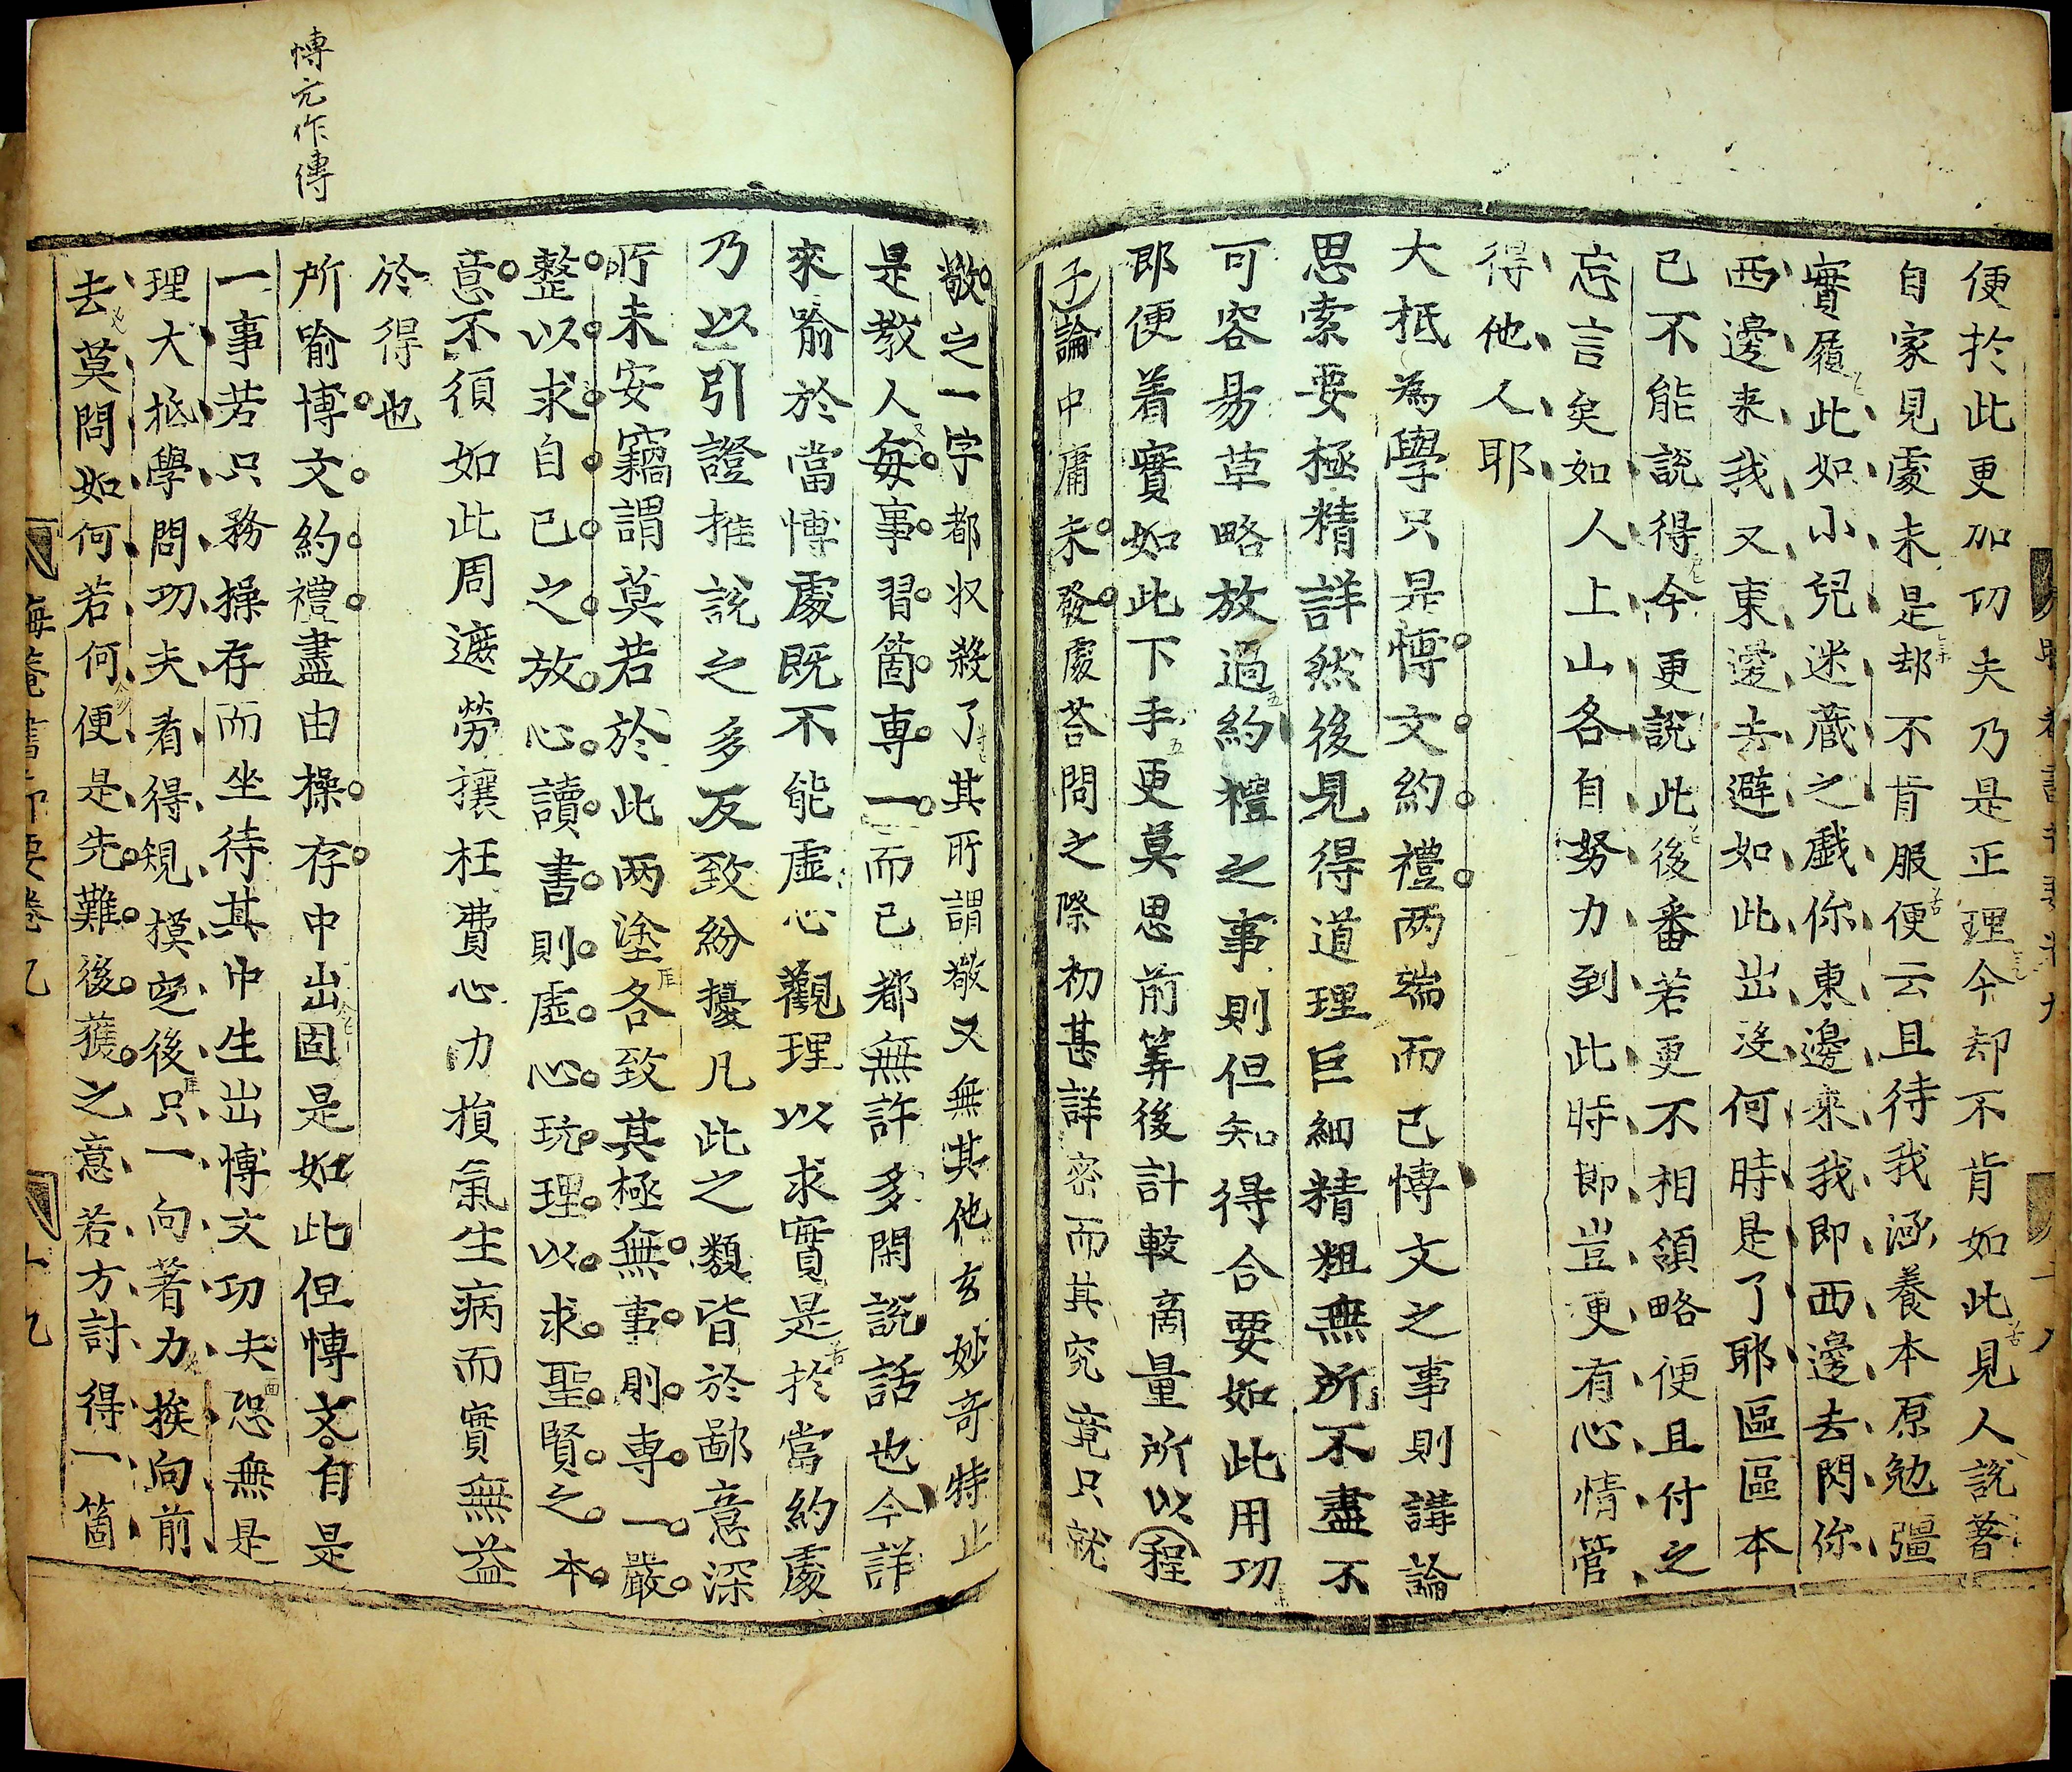 便於此更加功夫乃是正理今却不肯如此見人說著
自家見處未是却不肯服便云且待我涵養本原勉彊
實履此如小兒迷蔵之戲你東邊来我即西邊去閃你
西邊来我又東邊去避如此出沒何時是了耶區區本
已不能說得今更說此後番若更不相領略便且付之
忘言矣如人上山各自努力到此時即豈更有心情管
得他人耶
大抵為學只是博文約禮两端而已博文之事則講論
思索要極精詳然後見得道理巨細精粗無所不盡不
可容易草略放過約禮之事則但知得合要如此用功
即便着實如此下手更莫思前筭後計較商量所以程
子論中庸未發處荅問之際初甚詳密而其究竟只就
敬之一字都収殺了其所謂敬又無其他玄妙奇特止
是教人每事習箇專一而已都無許多閑說話也今詳
來喻於當博處既不能虛心觀理以求實是於當約處
乃以引證推說之多反致紛擾凡此之類皆於鄙意深
所未安竊謂莫若於此两塗各致其極無事則專一嚴
整以求自己之放心讀書則虛心玩理以求聖賢之本
意不須如此周遮勞攘枉費心力損氣生病而實無益
於得也
所喻博文約禮盡由操存中出固是如此但博文自是
一事若只務操存而坐待其中生出博文功夫恐無是
理大抵學問功夫看得規模定後只一向著力挨向前
去莫問如何若何便是先難後獲之意若方討得一箇
博元作傳
晦菴書節要卷九
十九